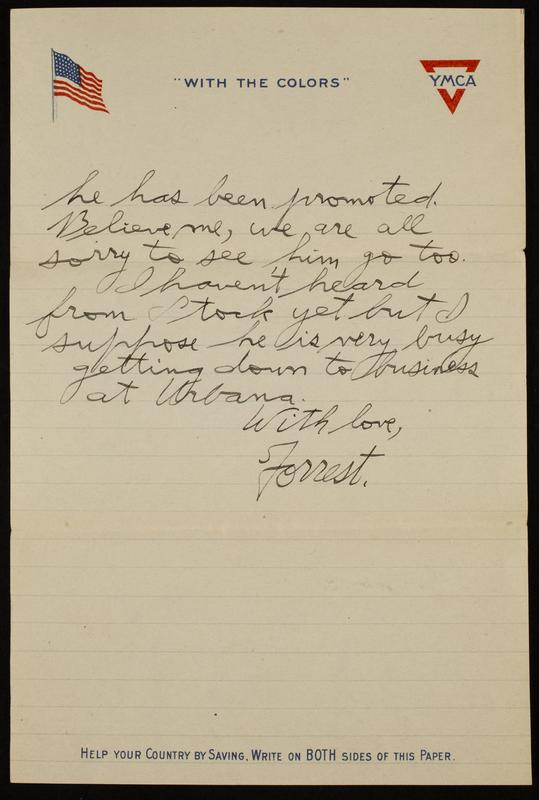 "WITH THE COLORS"
YMCA
he has been promoted.
Believe me, we are all
sorry to see him go too.
I haven't heard
from Stock yet but I
suppose he is very busy
getting down to business
at Urbana.
With love,
Forrest.
HELP YOUR COUNTRY BY SAVING, WRITE ON BOTH SIDES OF THIS PAPER.